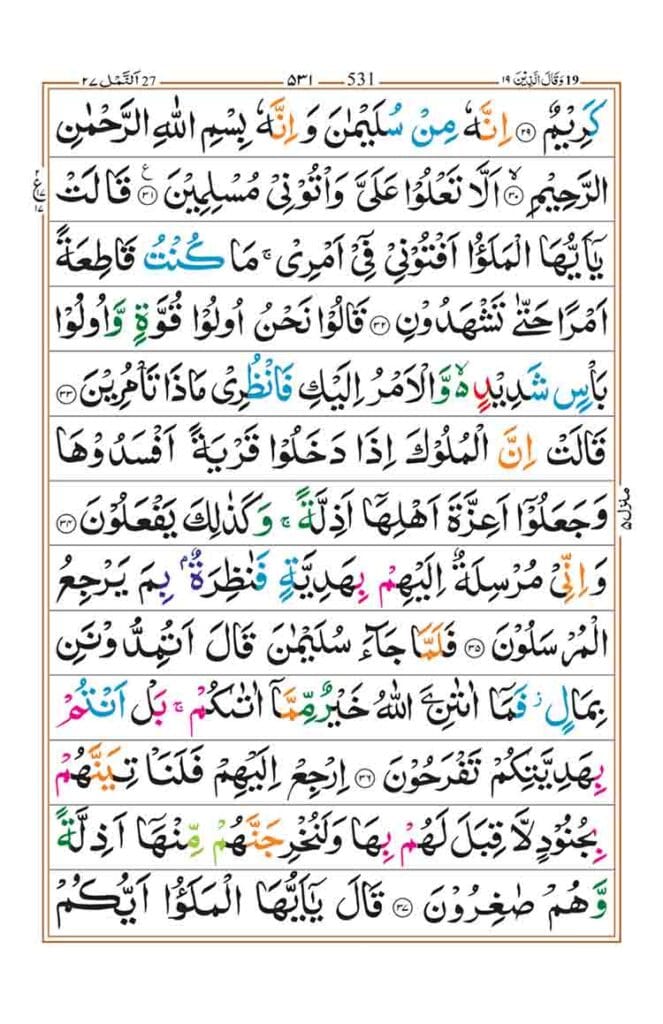 19 وَقَالَ الَّذِيْنَ ١٩ 531 ٥٣١ 27 اَلنَّمْل ٢٧
كَرِيْمٌ ۝٢٩ اِنَّهٗ مِنْ سُلَيْمٰنَ وَ اِنَّهٗ بِسْمِ اللّٰهِ الرَّحْمٰنِ
الرَّحِيْمِ ۝٣٠ۙ اَلَّا تَعْلُوْا عَلَيَّ وَاْتُوْنِيْ مُسْلِمِيْنَ ۝٣١ۧ قَالَتْ
يٰۤاَيُّهَا الْمَلَؤُا اَفْتُوْنِيْ فِيْۤ اَمْرِيْ ۚ مَا كُنْتُ قَاطِعَةً
اَمْرًا حَتّٰى تَشْهَدُوْنِ ۝٣٢ قَالُوْا نَحْنُ اُولُوْا قُوَّةٍ وَّاُولُوْا
بَاْسٍ شَدِيْدٍ ۙ۬ وَّالْاَمْرُ اِلَيْكِ فَانْظُرِيْ مَاذَا تَاْمُرِيْنَ ۝٣٣
قَالَتْ اِنَّ الْمُلُوْكَ اِذَا دَخَلُوْا قَرْيَةً اَفْسَدُوْهَا
وَجَعَلُوْۤا اَعِزَّةَ اَهْلِهَاۤ اَذِلَّةً ۚ وَكَذٰلِكَ يَفْعَلُوْنَ ۝٣٤
وَاِنِّيْ مُرْسِلَةٌ اِلَيْهِمْ بِهَدِيَّةٍ فَنٰظِرَةٌۢ بِمَ يَرْجِعُ
الْمُرْسَلُوْنَ ۝٣٥ فَلَمَّا جَآءَ سُلَيْمٰنَ قَالَ اَتُمِدُّوْنَنِ
بِمَالٍ ز فَمَاۤ اٰتٰىنِۦَ اللّٰهُ خَيْرٌ مِّمَّاۤ اٰتٰىكُمْ ۚ بَلْ اَنْتُمْ
بِهَدِيَّتِكُمْ تَفْرَحُوْنَ ۝٣٦ اِرْجِعْ اِلَيْهِمْ فَلَنَاْتِيَنَّهُمْ
بِجُنُوْدٍ لَّا قِبَلَ لَهُمْ بِهَا وَلَنُخْرِجَنَّهُمْ مِّنْهَاۤ اَذِلَّةً
وَّهُمْ صٰغِرُوْنَ ۝٣٧ قَالَ يٰۤاَيُّهَا الْمَلَؤُا اَيُّكُمْ
منزل ٥